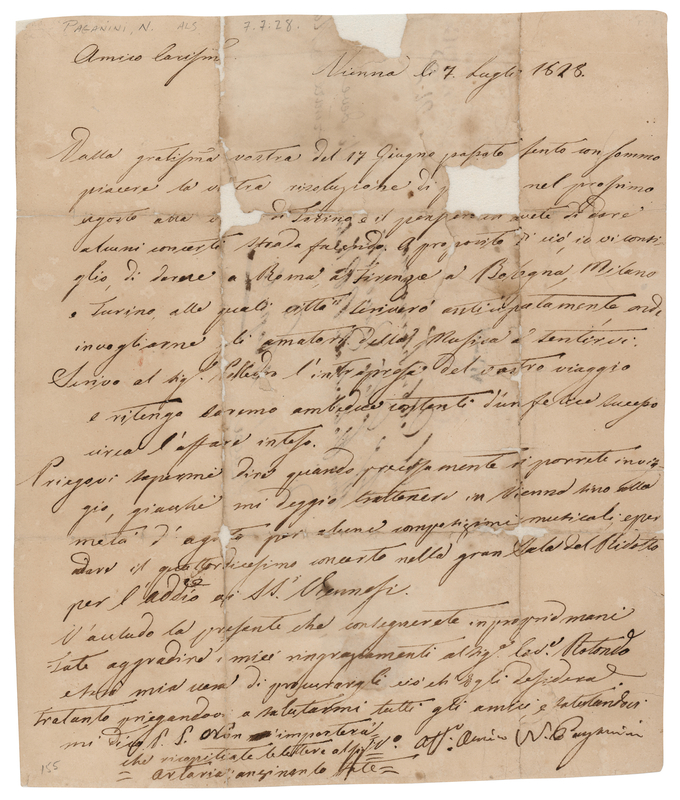 PAGANINI, N. ALS 7.7.28.
Amico Carissmo
Vienna li 7 Luglio 1828.
Dalla gratissma vostra del 17 Giugno passato sento con sommo
piacere la vostra risoluzione di nel prossimo
agosto alla di Torino, e il pensare di dare
alcuni concerti strada facendo. A proposito di ciò, io vi consi-
glio, di darne a Roma, a Firenze a Bologna, Milano
e Turino, alle quali città scriverò anticipatamente onde
invogliarne gli amatori della Musica a sentirvi.
Scrivo al Sigr. Polledro l'intrapresa del vostro viaggio
e ritengo saremo ambedue contenti d'un felice successo
circa l'affare inteso.
Priegovi sapermi dire quando precisamente vi porrete in viag-
gio, giacchè mi deggio trattenere in Vienna sino alla
metà d'agosto per alcune composizioni musicali e per
dare il quattordicesimo concerto nella gran Sala del Ridotto
per l'addio ai SS.i Viennesi.
V'accludo la presente che consegnerete in proprie mani
Fate aggradire i miei ringraziamenti al Sigr. Rotondo
e sarà mia cura di procurargli ciò che Egli desidera.
Frattanto priegandovi a salutarmi tutti gli amici e salutandovi
mi dico
P. S. Non importerà
che ricapitiate le lettere al Sigr.
= Artaria; anzi non lo fate =
Vo. Affo. Amico N. Paganini
155